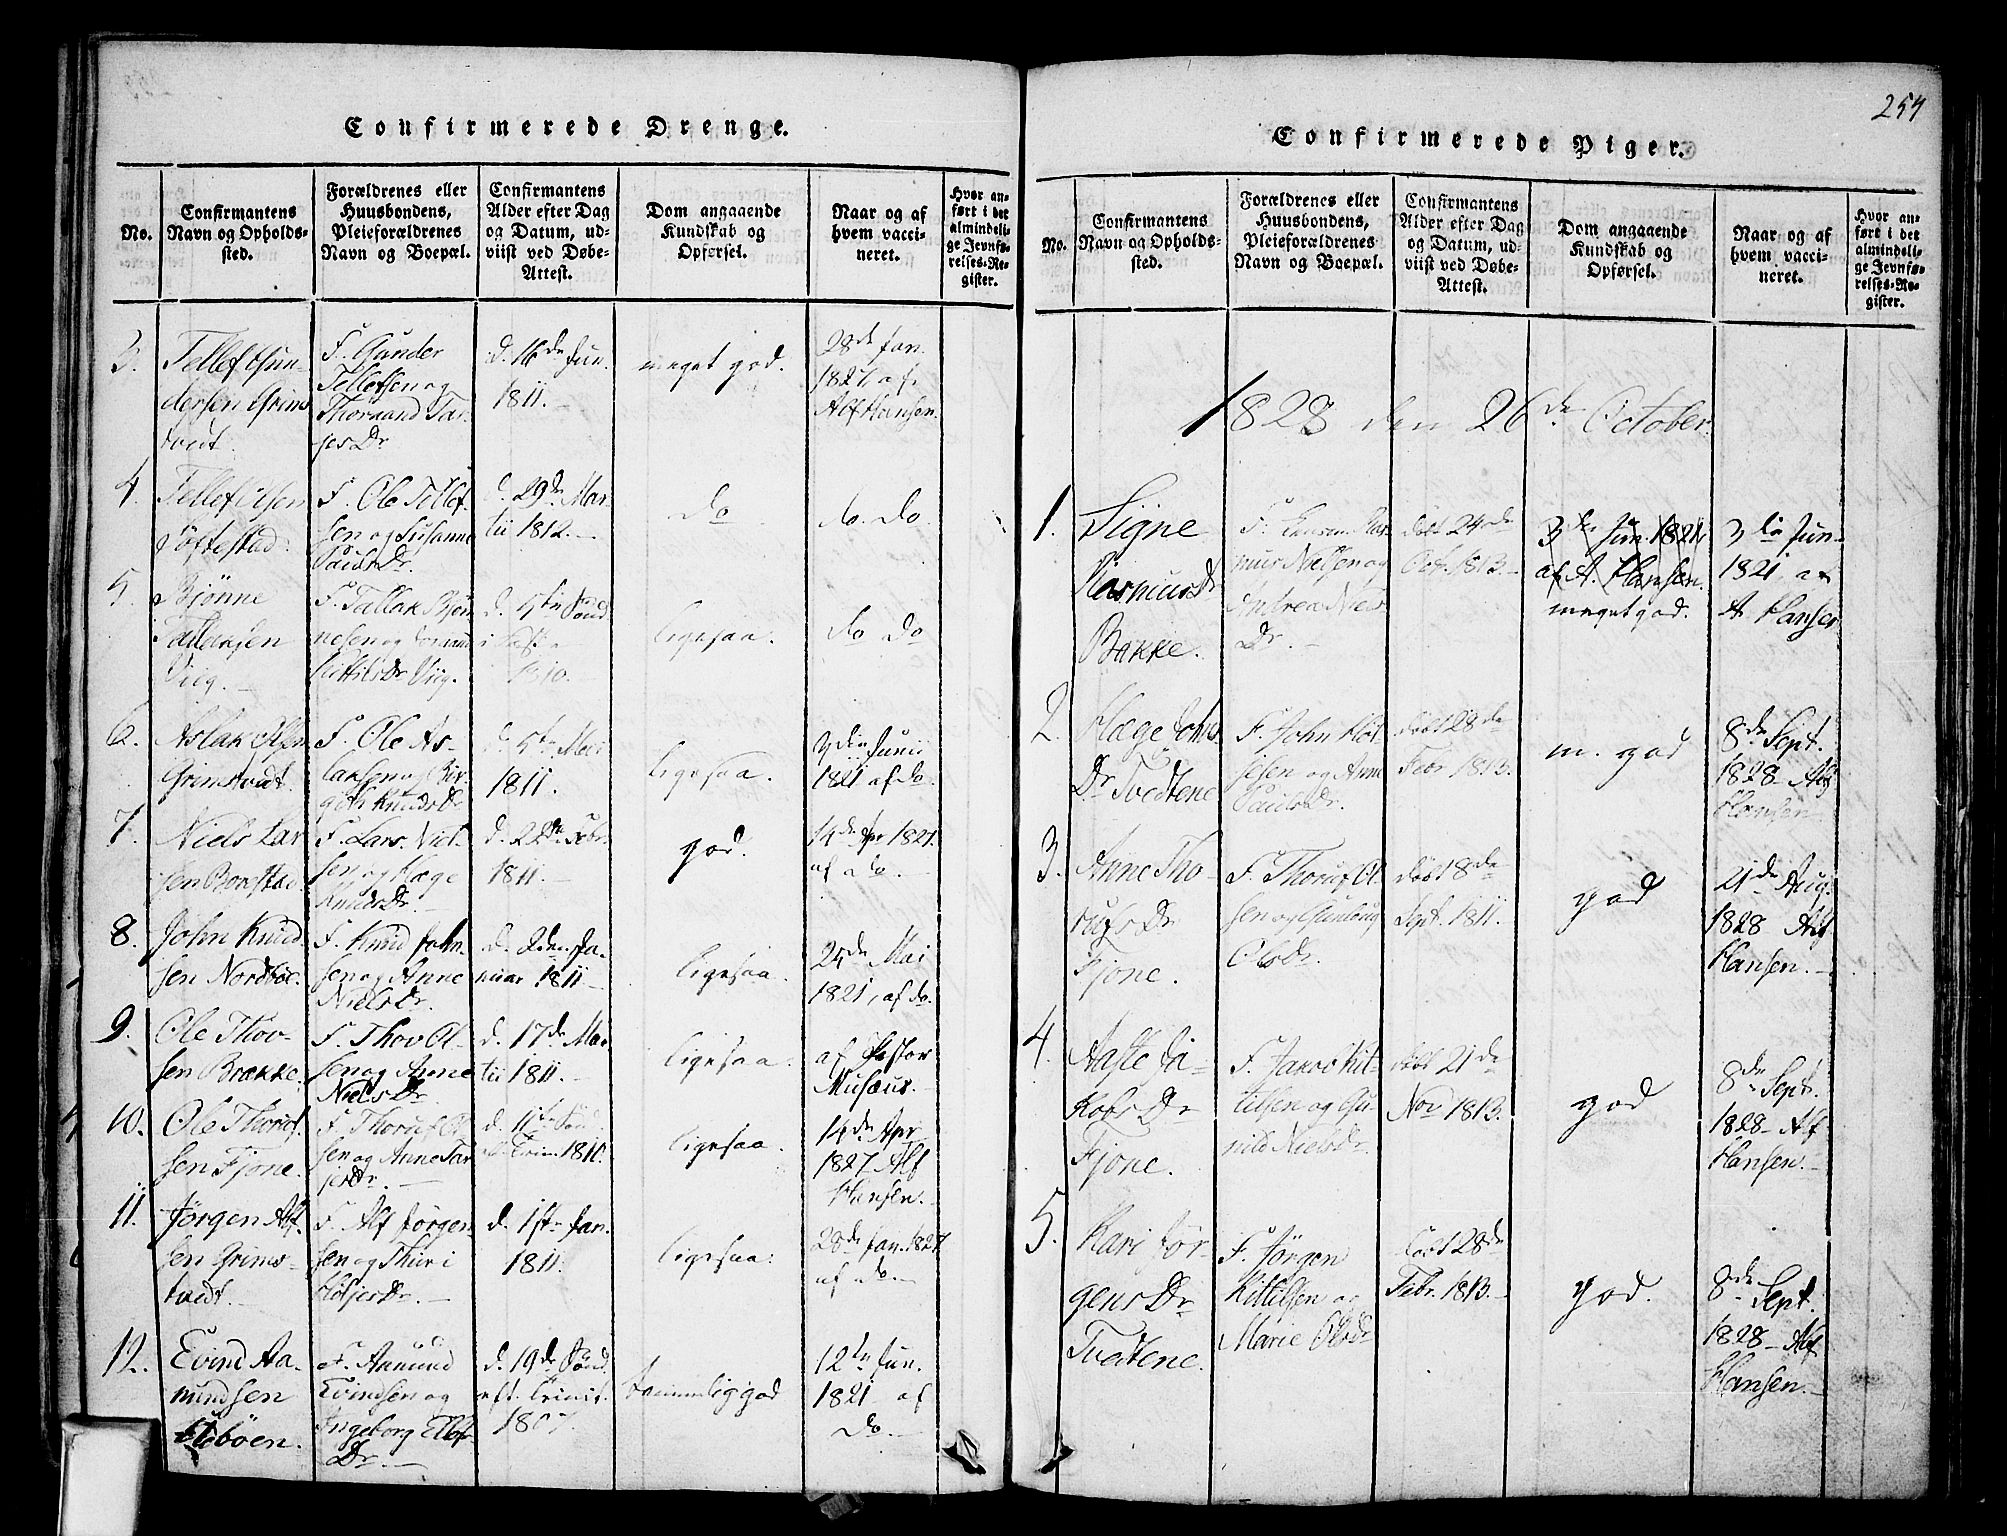 Confirmerede Drenge.
No.
Confirmantens
Navn og Opholds-
sted.
Forældrenes eller
Huusbondens,
Pleieforældrenes
Navn og Boepæl.
Confirmantens
Alder efter Dag
og Datum, ud-
viist ved Døbe-
Attest.
Dom angaaende
Kundskab og
Opførsel.
Naar og af
hvem vacci-
neret.
Hvor an-
ført i det
almindeli-
ge Jevnfø-
relses-Re-
gister.
3.
Tellef Gun-
dersen Grims
tvedt.
F. Gunder
Tellefsen og
Thorand Tar-
jes Dr
d. 16de Jun.
1811.
meget god.
28de Jan.
1827, af
Alf Hansen.
4.
Tellef Olsen
F. Ole Tellef-
sen og Susanne
Pauls Dr.
d. 29de Mar-
tii 1812.
do
do. do.
5.
Bjønne
Viig.
F. Tallak Bjøn
nesen og
Kittils Dr Viig.
d. 5te Sønd
i
1810.
ligesaa.
do do
6.
Aslak Olsen
Grimstvedt.
F. Ole As-
laksen og Bir-
Knuds Dr
d. 5te Mai
1811.
ligesaa.
Junii
1821 af do.
7.
Niels Lar
sen
F. Lars Niel-
sen og Hæge
Knuds Dr.
d. 22de Febr.
1811.
god.
14de Apr 1821.
af do.
8.
John Knud
sen Nordbøe.
F. Knud John
sen og Anne
Niels Dr.
d. 2den Ja-
nuar 1811
ligesaa.
25de Mai
1821, af do.
9.
Ole Thov-
sen Brække.
F. Thov Ol-
sen og Anne
Niels Dr.
d. 17de Mar
tii 1811.
ligesaa.
af Pastor
Musæus.
10.
Ole Thoruf
sen Fjone.
F. Thoruf Ol
sen og Anne Tar
jes Dr.
d. 11te Sønd
e. Trin. 1810.
ligesaa.
14de Apr.
1827 Alf
Hansen.
11.
Jørgen Alf
sen Grims-
tvedt.
F. Alf Jørgen
sen og Thuri
Høljes Dr.
d. 1ste Jan.
1811.
ligesaa.
28de Jan. 1827
af do.
12.
Evind Aa-
mundsen
F. Aamund
Evindsen og
Ingeborg
Dr.
d. 19de Sønd
eft. Trinit.
1807
temmelig god
12te Jun.
1821 af
do.
254
Confirmerede Piger.
No.
Confirmantens
Navn og Opholds-
sted.
Forældrenes eller
Huusbondens,
Pleieforældrenes
Navn og Boepæl.
Confirmantens
Alder efter Dag
og Datum, ud-
viist ved Døbe-
Attest.
Dom angaaende
Kundskab og
Opførsel.
Naar og af
hvem vacci-
neret.
Hvor an-
ført i det
almindeli-
ge Jevnfø-
relses-Re-
gister.
1828 den 26de October.
1.
Signe
Rasmus Dr
Bakke.
F. Ras-
mus Nielsen og
Andrea Niels
Dr.
døbt 24de
Oct. 1813.
3die Jun. 1821.
af A. Hansen.
meget god.
3die Jun-
1821, af
A Hansen
2.
Hæge Johns
Dr Tvedtene
F. John
sen og Anne
Pauls Dr.
døbt 28de
Febr 1813.
m. god
8de Sept.
1828 Alf
Hansen
3.
Anne Tho-
rufs Dr
Fjone.
F. Thoruf Ol-
sen og Gunborg
Ols Dr.
døbt 8de
Sept. 1811.
god
21de Aug.
1828 Alf
Hansen.
4.
Aaste Ja-
kobs Dr
Fjone.
F. Jakob Kit-
tilsen og Gu-
nild Niels Dr.
døbt 21de
Nov 1813.
god
8de Sept.
1828 Alf
Hansen.
5.
Kari Jør-
gens Dr
Tvedtene.
F. Jørgen
Kittilsen og
Marie Ols Dr
døbt 28de
Febr. 1813.
god.
8de Sept.
1828 Alf
Hansen.